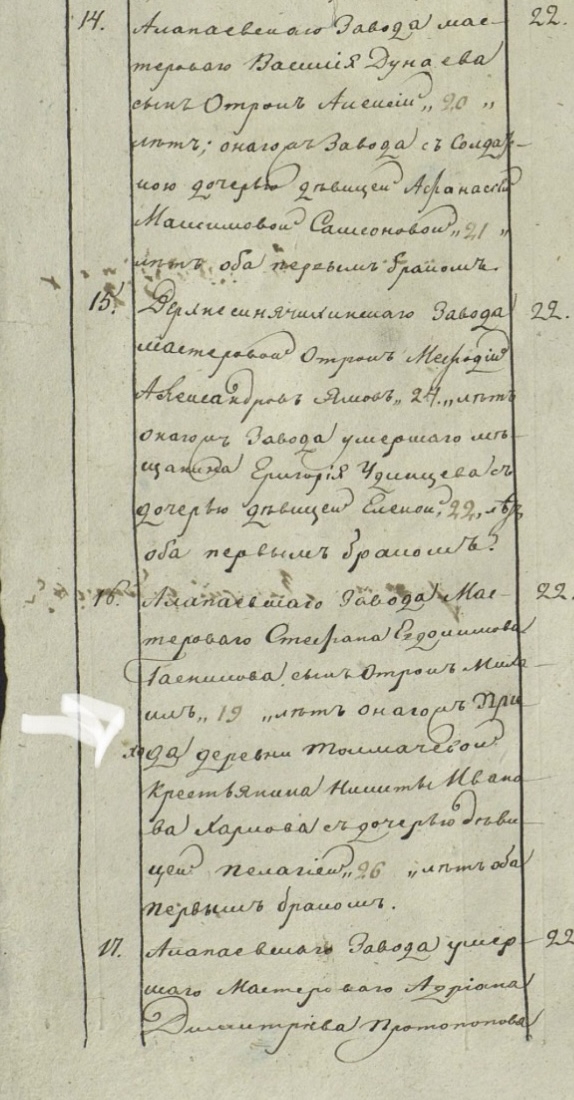 14. Алапаевскаго Завода мас- 22.
тероваго Василія Дунаева
сынъ Отрокъ Алексій „ 20 „
лѣтъ; онагожъ Завода съ Солдат-
кою дочерью дѣвицей Афанасіей
Максимовой Самсоновой „ 21 „
лѣтъ оба первымъ бракомъ.
15. Верхнесинячихинскаго Завода 22.
мастеровой Отрокъ Мефодій
Александровъ Ямовъ „ 24 „ лѣтъ
онагожъ Завода умершаго мѣ-
щанина Григорія Удинцева съ
дочерью дѣвицей Еленой, 22, лѣтъ
оба первымъ бракомъ.
16. Алапаевскаго Завода Мас- 22.
тероваго Стефана Евдокимова
сынъ Отрокъ Миха-
илъ „ 19 „ лѣтъ онагожъ При
хода деревни Толмачевой
Крестьянина Никиты Ивано
ва Харлова съ дочерью дѣви
цей Пелагіей „ 26 „ лѣтъ оба
первымъ бракомъ.
17. Алапаевскаго Завода умер- 22
шаго Мастероваго Адріана
Димитріева Протопопова